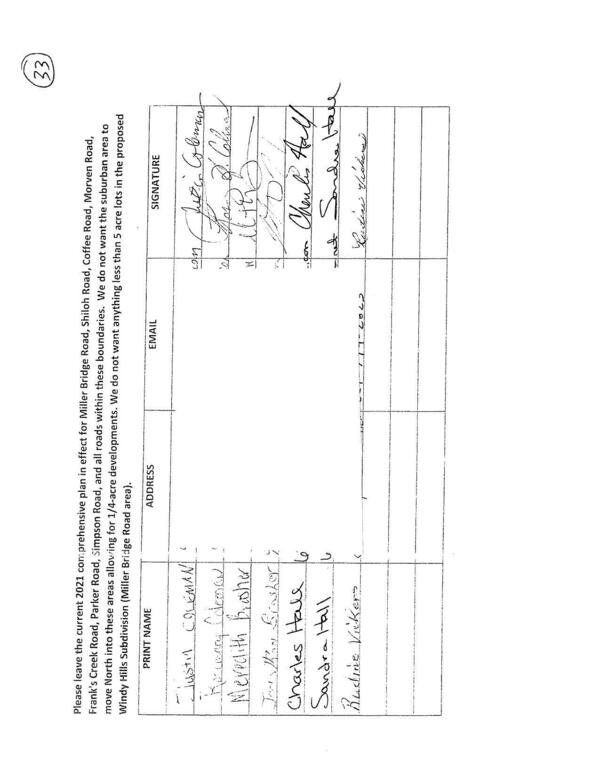 33
Please leave the current 2021 comprehensive plan in effect for Miller Bridge Road, Shiloh Road, Coffee Road, Morven Road,
Frank's Creek Road, Parker Road, Simpson Road, and all roads within these boundaries. We do not want the suburban area to
move North into these areas allowing for 1/4-acre developments. We do not want anything less than 5 acre lots in the proposed
Windy Hills Subdivision (Miller Bridge Road area).
PRINT NAME ADDRESS EMAIL SIGNATURE
Justin COLEMAN Justin Coleman
Coleman
Meredith Brasher
Brasher
Charles Hall .com Charles Hall
Sandra Hall net Sandra Hall
Vickers